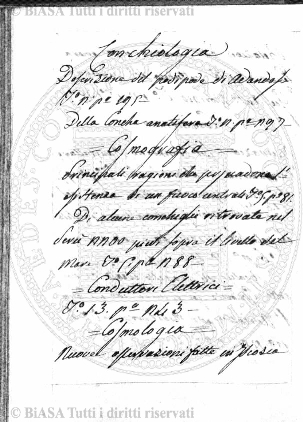 © BiASA Tutti i diritti riservati
Conchiologia
Descrizione del
To. n. pe. 195
Della Concha anatifera To. n. pe. 197
Cosmografia
Principali ragioni che persuadono l'
esistenza di un fuoco centrale To. 5. pe. 81.
Di alcune conchiglie ritrovate nel
piedi sopra il livello del
Mare To. 5. pe. 188
Conduttori Elettrici
To. 13. pe.
Cosmologia
Nuove osservazioni fatte in
© BiASA Tutti i diritti riservati